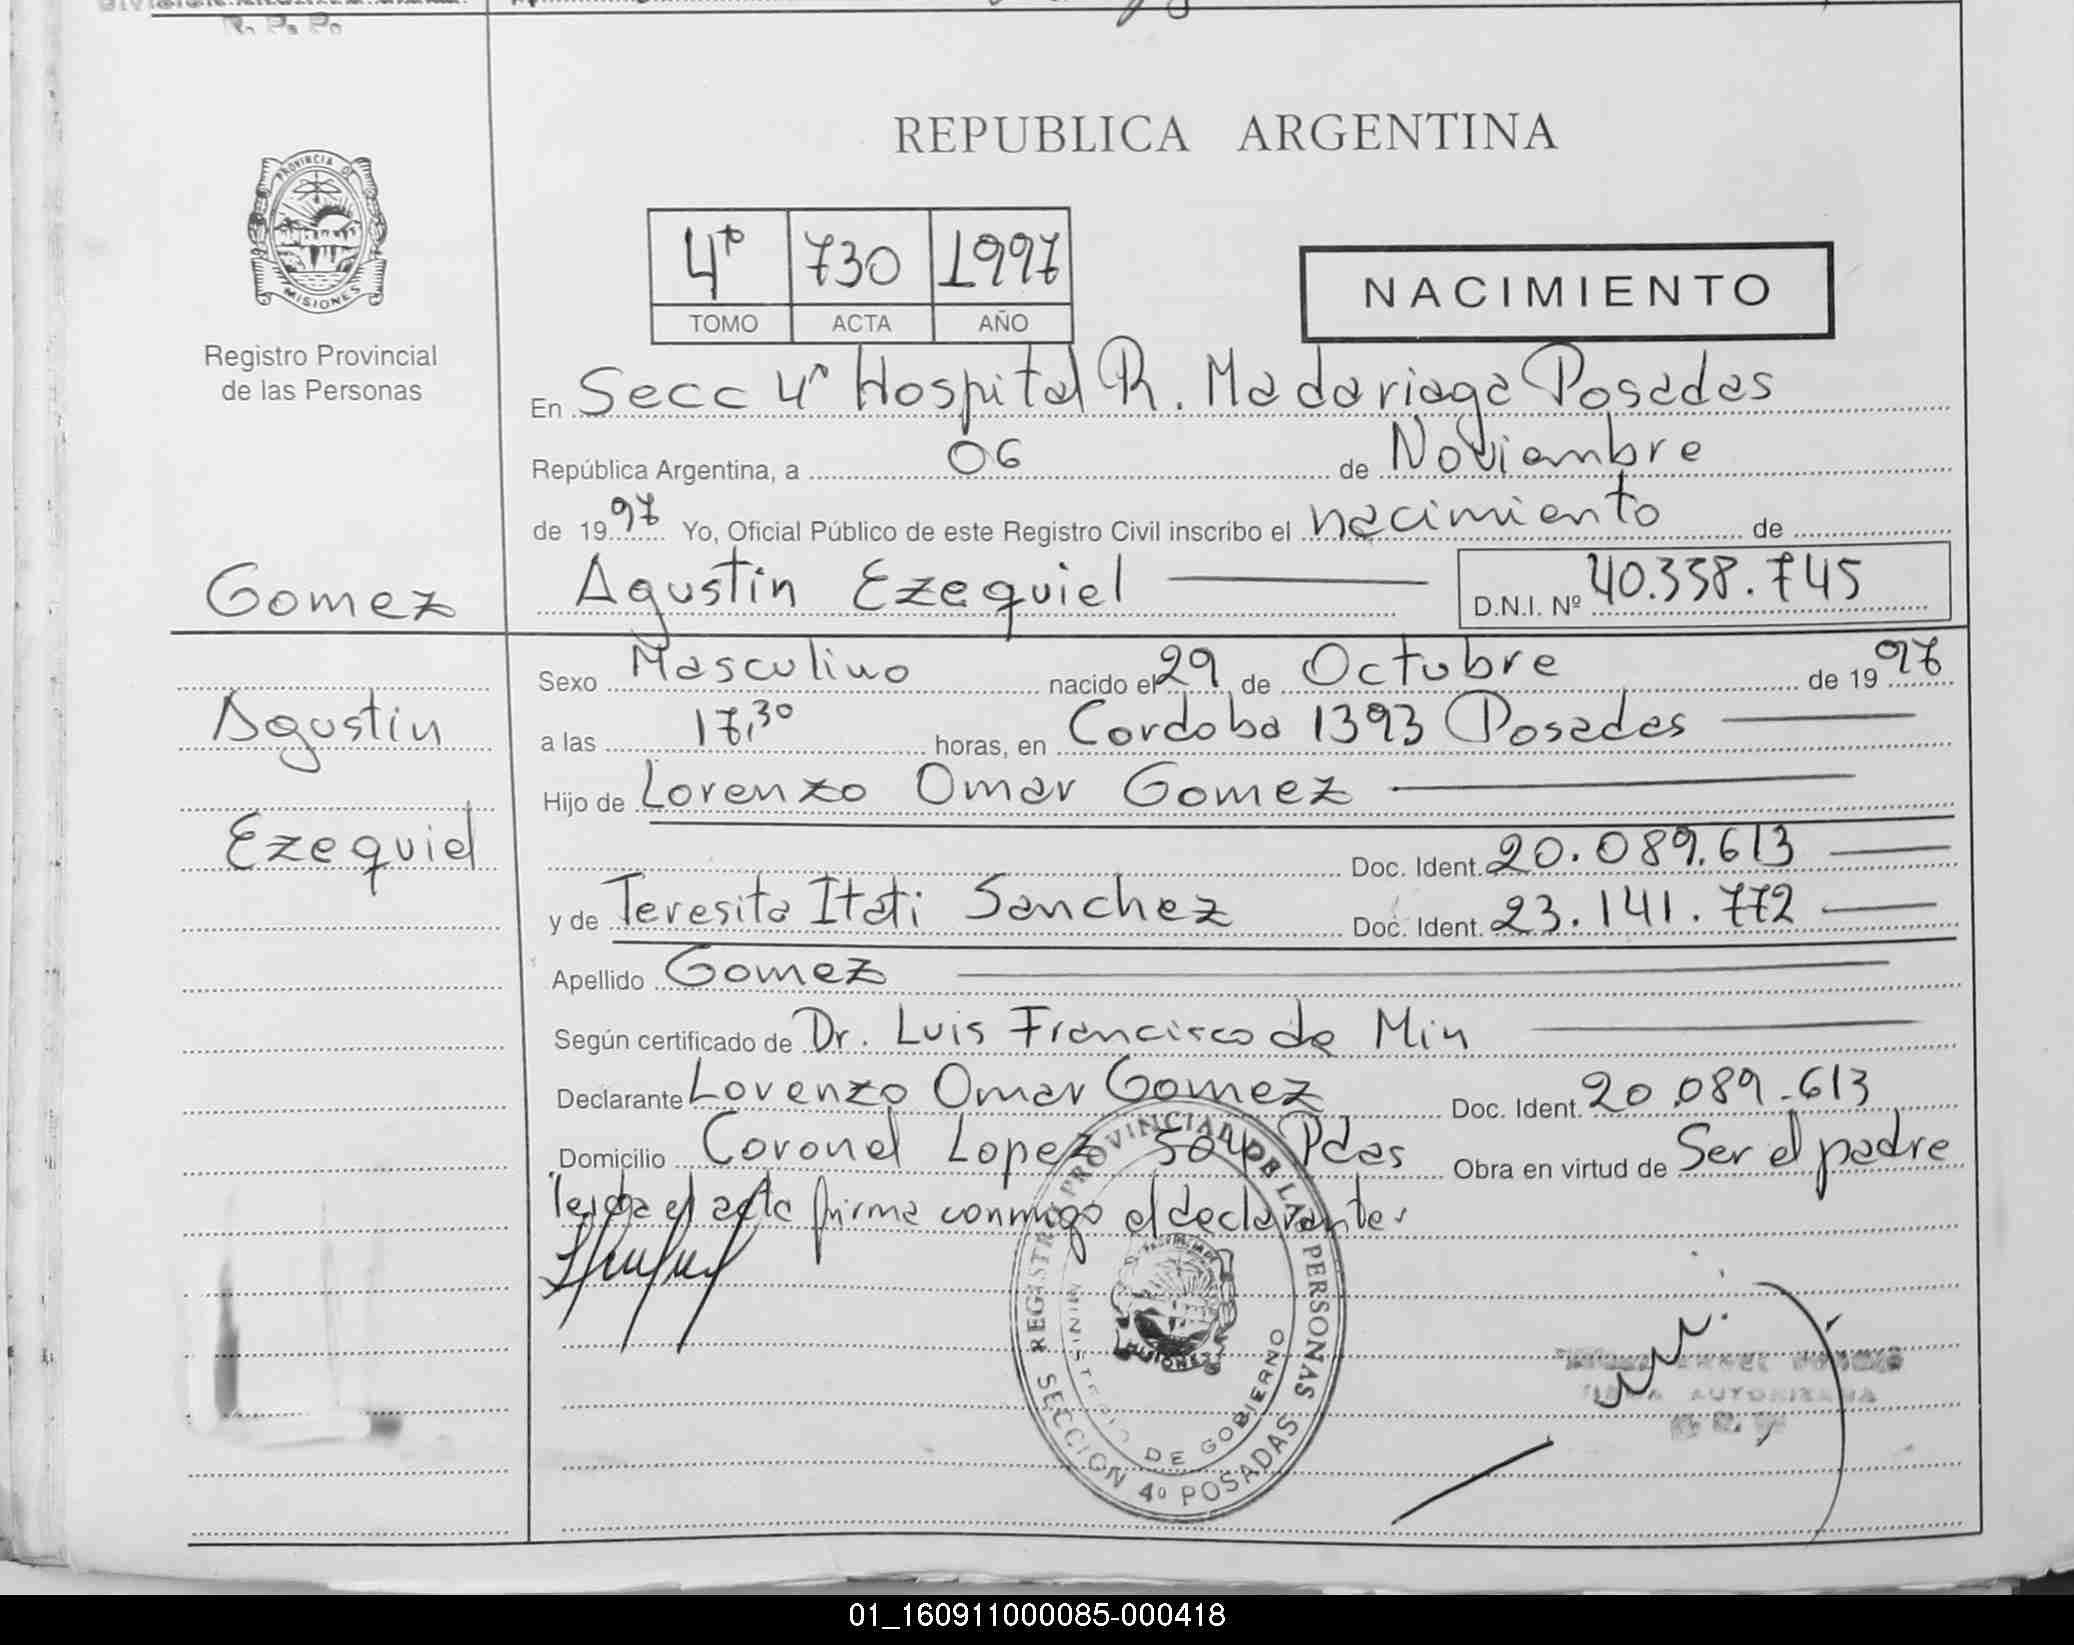 R. P. P.
REPUBLICA ARGENTINA
PROVINCIA DE
MISIONES
Registro Provincial
de las Personas
4to 730 1997
TOMO ACTA AÑO
NACIMIENTO
En Secc 4a Hospital R. Madariaga Posadas
República Argentina, a 06 de Noviembre
de 1997 Yo, Oficial Público de este Registro Civil inscribo el nacimiento de
Gomez
Agustin Ezequiel
D.N.I. Nº 40.338.745
Sexo Masculino nacido el 29 de Octubre de 1997
Agustin
a las 17,30 horas, en Cordoba 1393 Posadas
Hijo de Lorenzo Omar Gomez
Ezequiel
Doc. Ident. 20.089.613
y de Teresita Itati Sanchez Doc. Ident. 23.141.772
Apellido Gomez
Según certificado de Dr. Luis Francisco de Min
Declarante Lorenzo Omar Gomez Doc. Ident. 20.089.613
Domicilio Coronel Lopez Pdas Obra en virtud de Ser el padre
leida el acta firma conmigo el declarante.
REGISTRO PROVINCIAL DE LAS PERSONAS
MINISTERIO DE GOBIERNO
MISIONES
SECCION 4º POSADAS
FIRMA AUTORIZADA
01_160911000085-000418